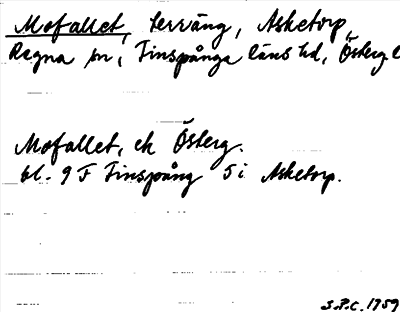 Mofallet, terräng, Asketorp,
Regna sn, Finspånga läns hd, Österg l
Mofallet, ek Österg.
bl. 9 F Finspång 5 i Asketorp.
S.P.C. 1959